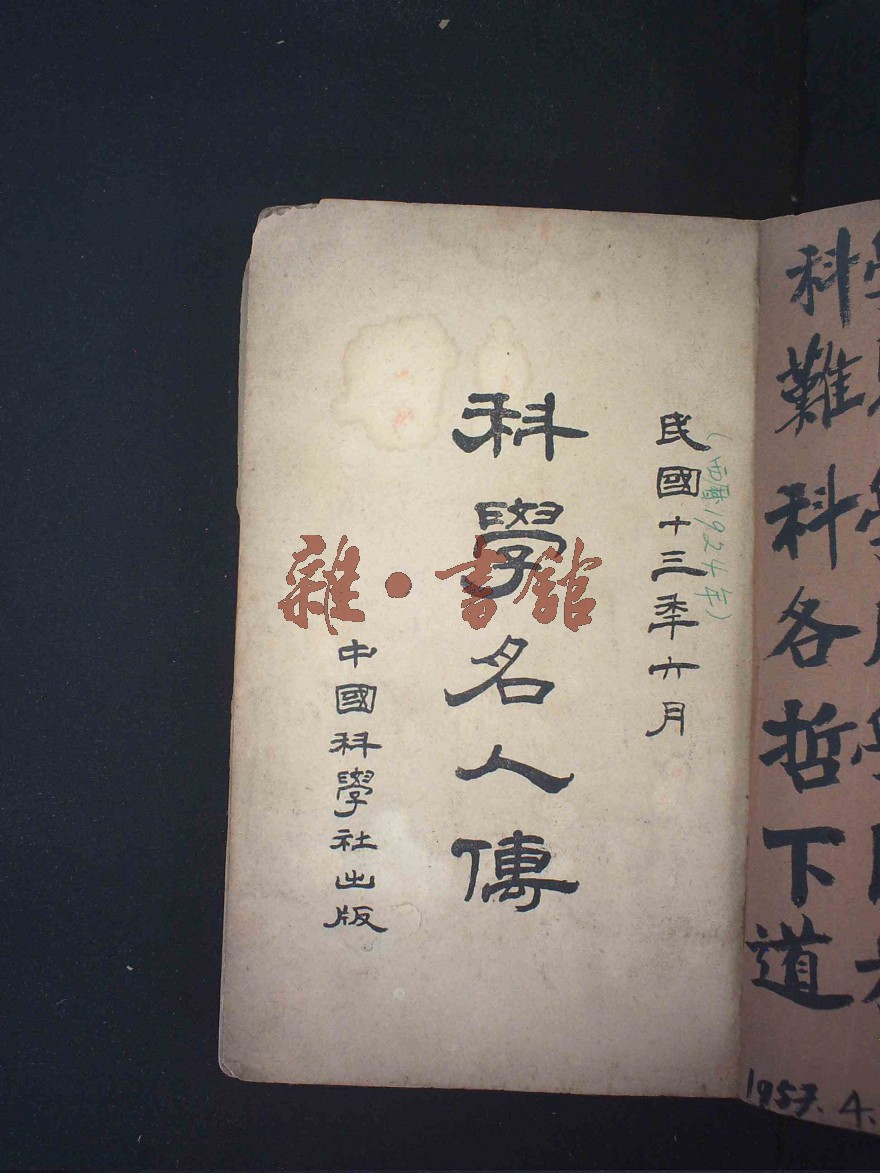 科難科各哲下道
1957.4.
民國十三季六月
(西曆1924年)
科學名人傳
中國科學社出版
雜·書館